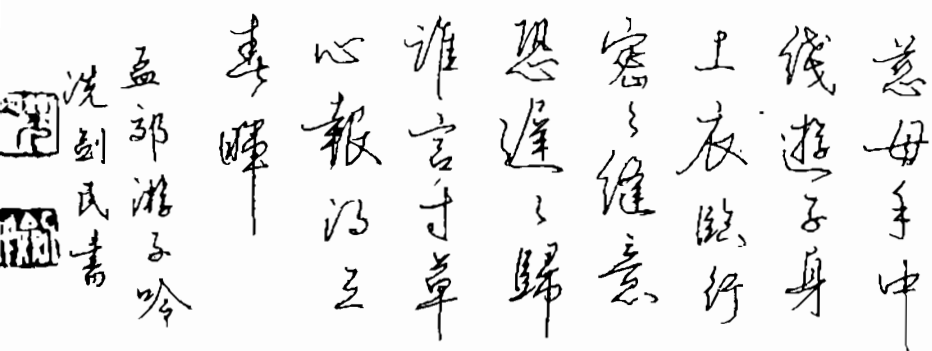 慈母手中
线遊子身
上衣臨行
密々縫意
恐遲々歸
誰言寸草
心報得三
春暉
孟郊游子吟
冼剑民書